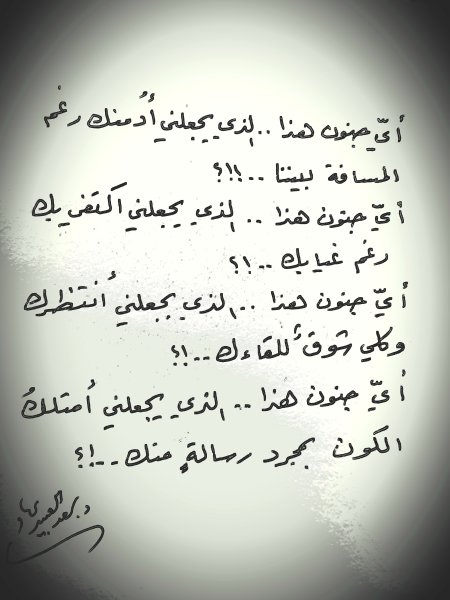 أيّ جنون هذا .. الذي يجعلني أُدمنك رغم
المسافة بيننا ..!!؟
أيّ جنون هذا .. الذي يجعلني اكتفي بك
رغم غيابك ..!؟
أيّ جنون هذا .. الذي يجعلني أُنتظرك
وكلي شوقٌ للقاءك ..!؟
أيّ جنون هذا .. الذي يجعلني أمتلكُ
الكون بمجرد رسالةٍ منك ..!؟